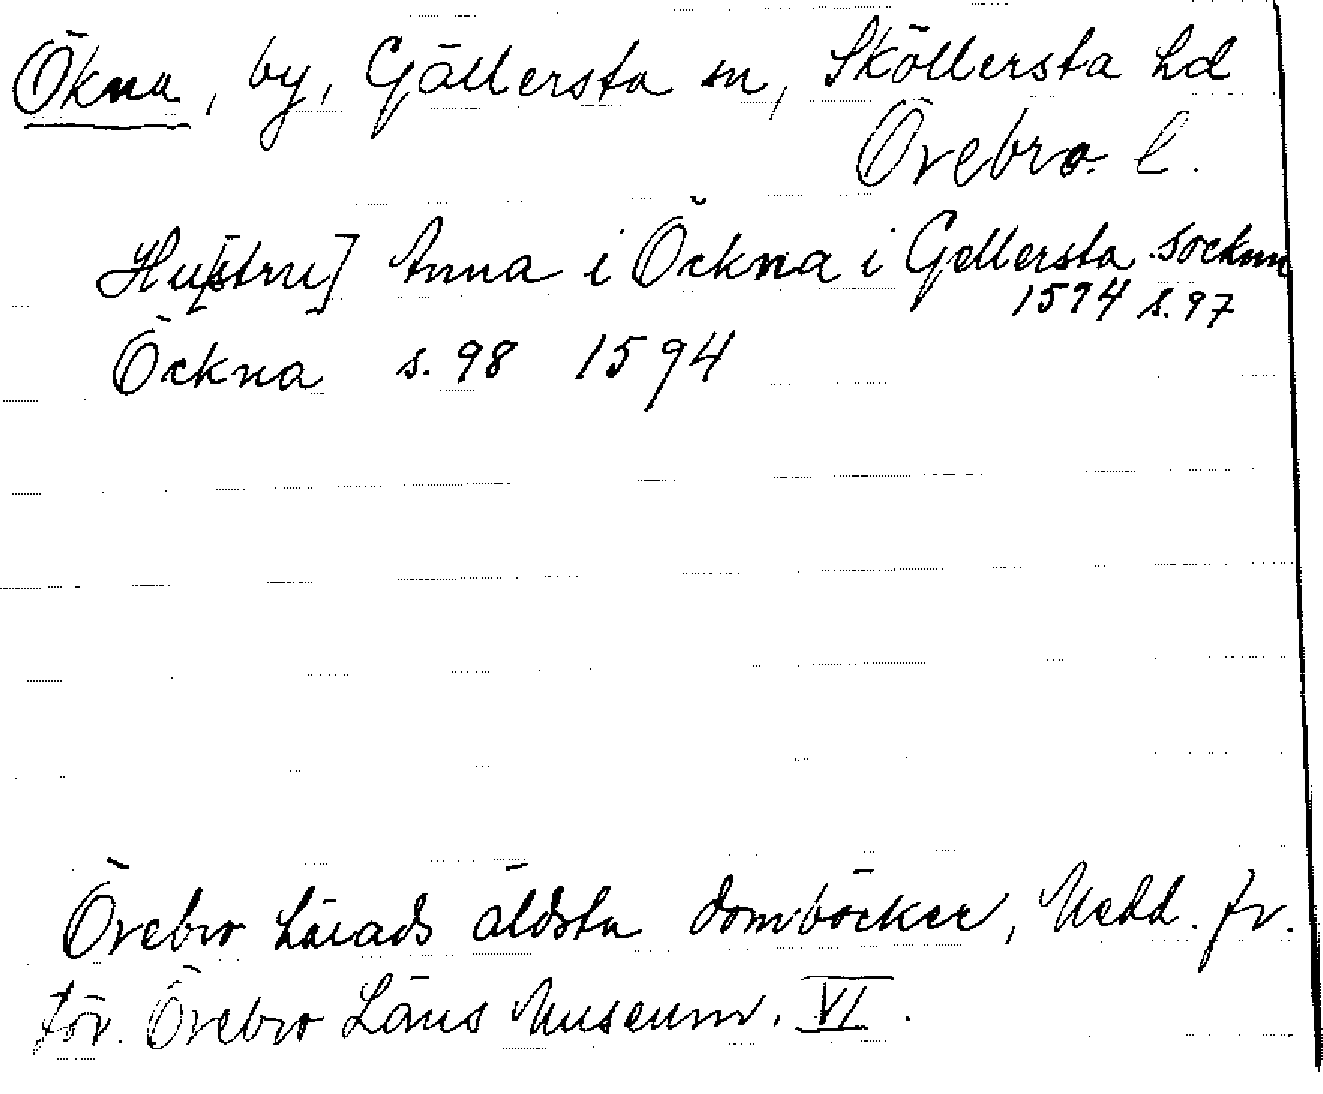 Ökna, by, Gällersta sn, Sköllersta hd
Örebro l.
Hu[stru] Anna i Öckna i Gellersta socknn
1594 s. 97
Öckna s. 98 1594
Örebro härads äldsta domböcker, Medd. fr.
för. Örebro Läns Museum. VI.